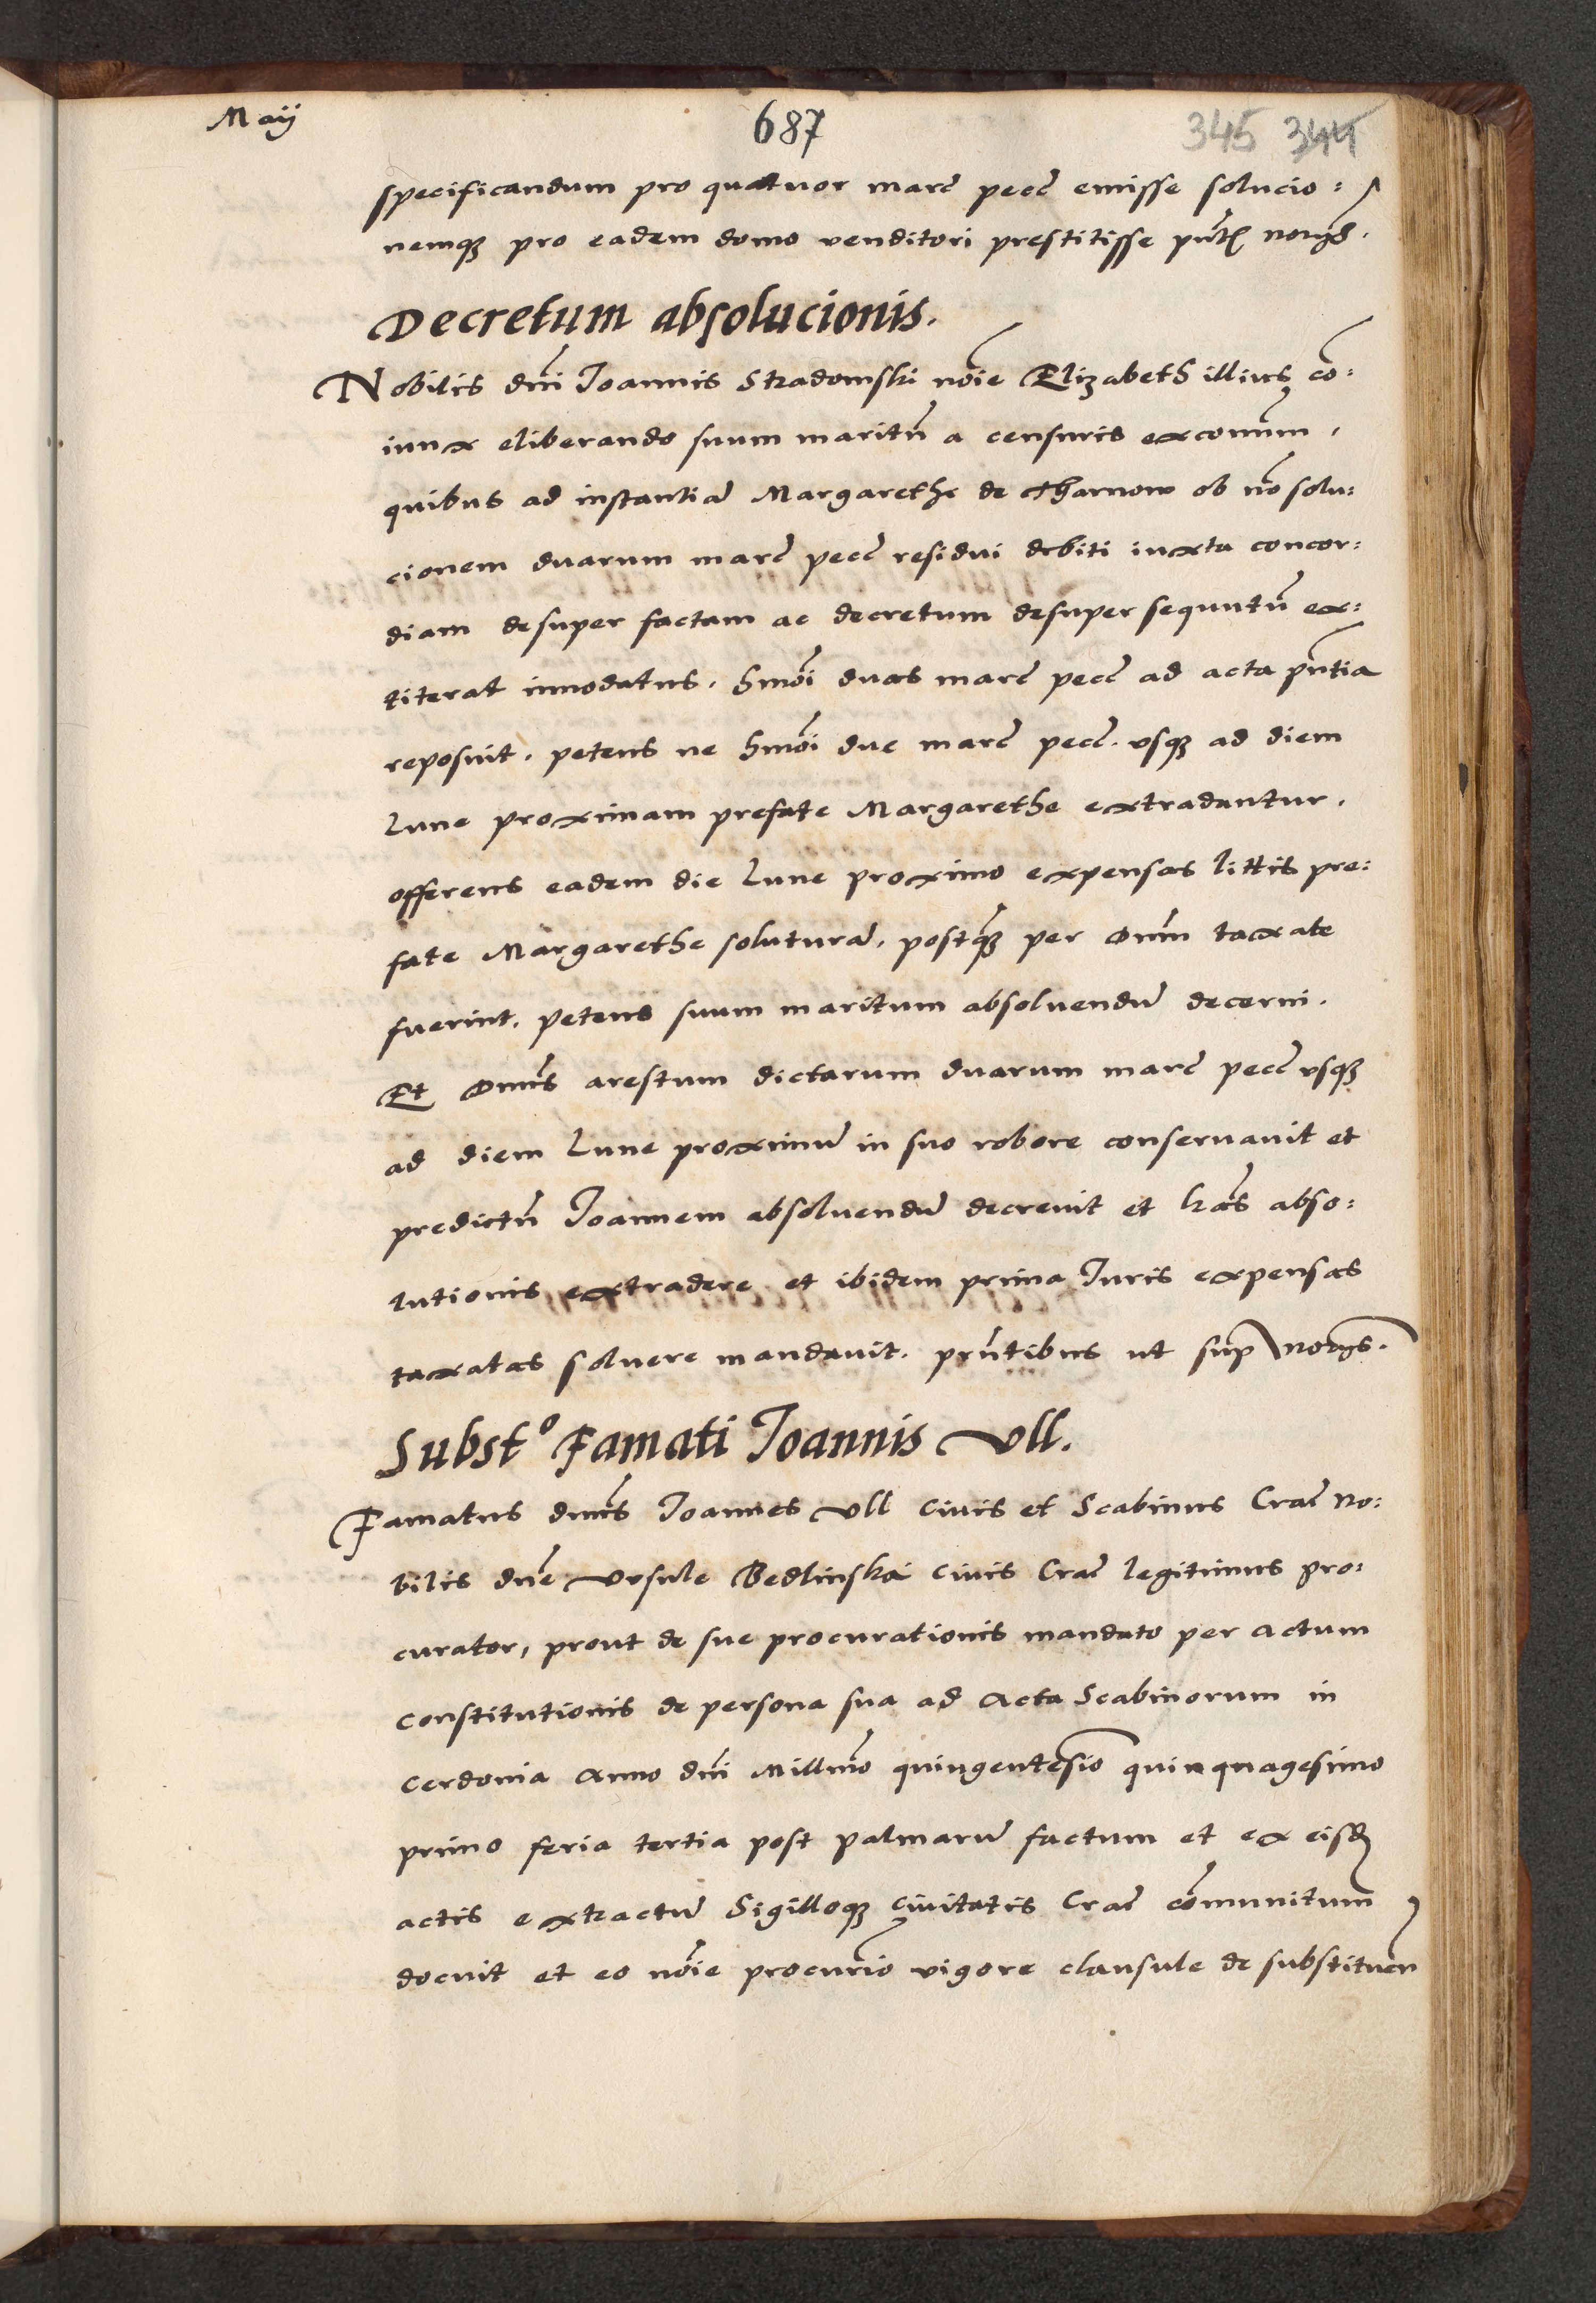 Maij
687
345 344
specificandum pro quatuor marc̃ pecc̃ emisse solucio:
nemq̨ pro eadem domo venditori prestitisse pñtib notijs.
Decretum absolucionis.
Nobilis dñi Joannis Stradomski noĩe Elizabeth illius cõ:
iunx eliberando suum maritũ a censuris excomm,
quibus ad instantiã Margarethe de Tharnow ob nõ solu:
cionem duarum marc̃ pecc̃ residui debiti iuxta concor:
diam desuper factam ac decretum desuper sequutũ ex:
titerat innodatus. hmõi duas marc̃ pecc̃ ad acta pñtia
reposuit. petens ne hmõi due marc̃ pecc̃. vsq̨ ad diem
Lune proximam prefate Margarethe extradantur.
offerens eadem die Lune proximo expensas littis pre:
fate Margarethe soluturã, postq̃ per Dnũm taxate
fuerint. petens suum maritum absoluendũ decerni.
Et Dnũs arestum dictarum duarum marc̃ pecc̃ vsq̨
ad diem Lune proximũ in suo robore conseruauit et
predictũ Joannem absoluendũ decreuit et lrãs abso:
lutionis extradere et ibidem prima Juris expensas
taxatas soluere mandauit. prñtibus ut sup notijs.
Substº Famati Joannis Vll.
Famatus dnũs Joannes Vll Ciuis et Scabinus Crac̃ No:
bilis dñe Vrsule Bedlinska Ciuis Crac̃ legitimus pro:
curator, prout de sue procurationis mandato per actum
constitutionis de persona sua ad Acta Scabinorum in
Cerdonia Anno dñi Millmõ quingentesĩo quinquagesimo
primo feria tertia post palmarũ factum et ex eisd̃
actis extractũ Sigilloq̨ Ciuitatis Crac̃ cõmunitum
docuit et eo noĩe procurĩo vigore clausule de substituen